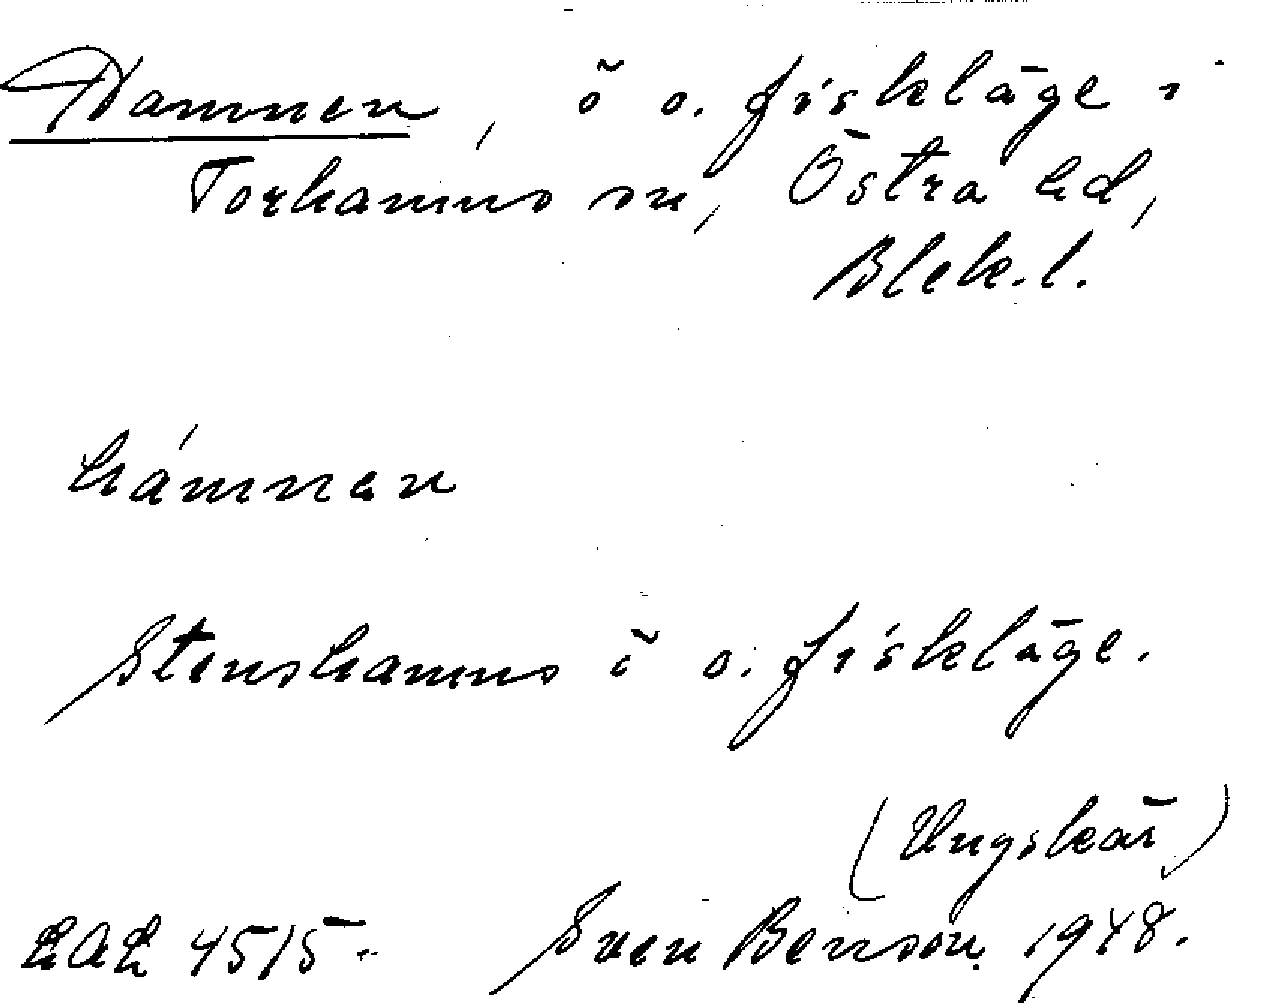 Hamnen, ö o. fiskläge i
Torhamns sn, Östra hd,
Blek. l.
hámnən
Stenshamns ö o. fiskläge.
(Ungskär)
LAL 4515. Sven Benson 1948.